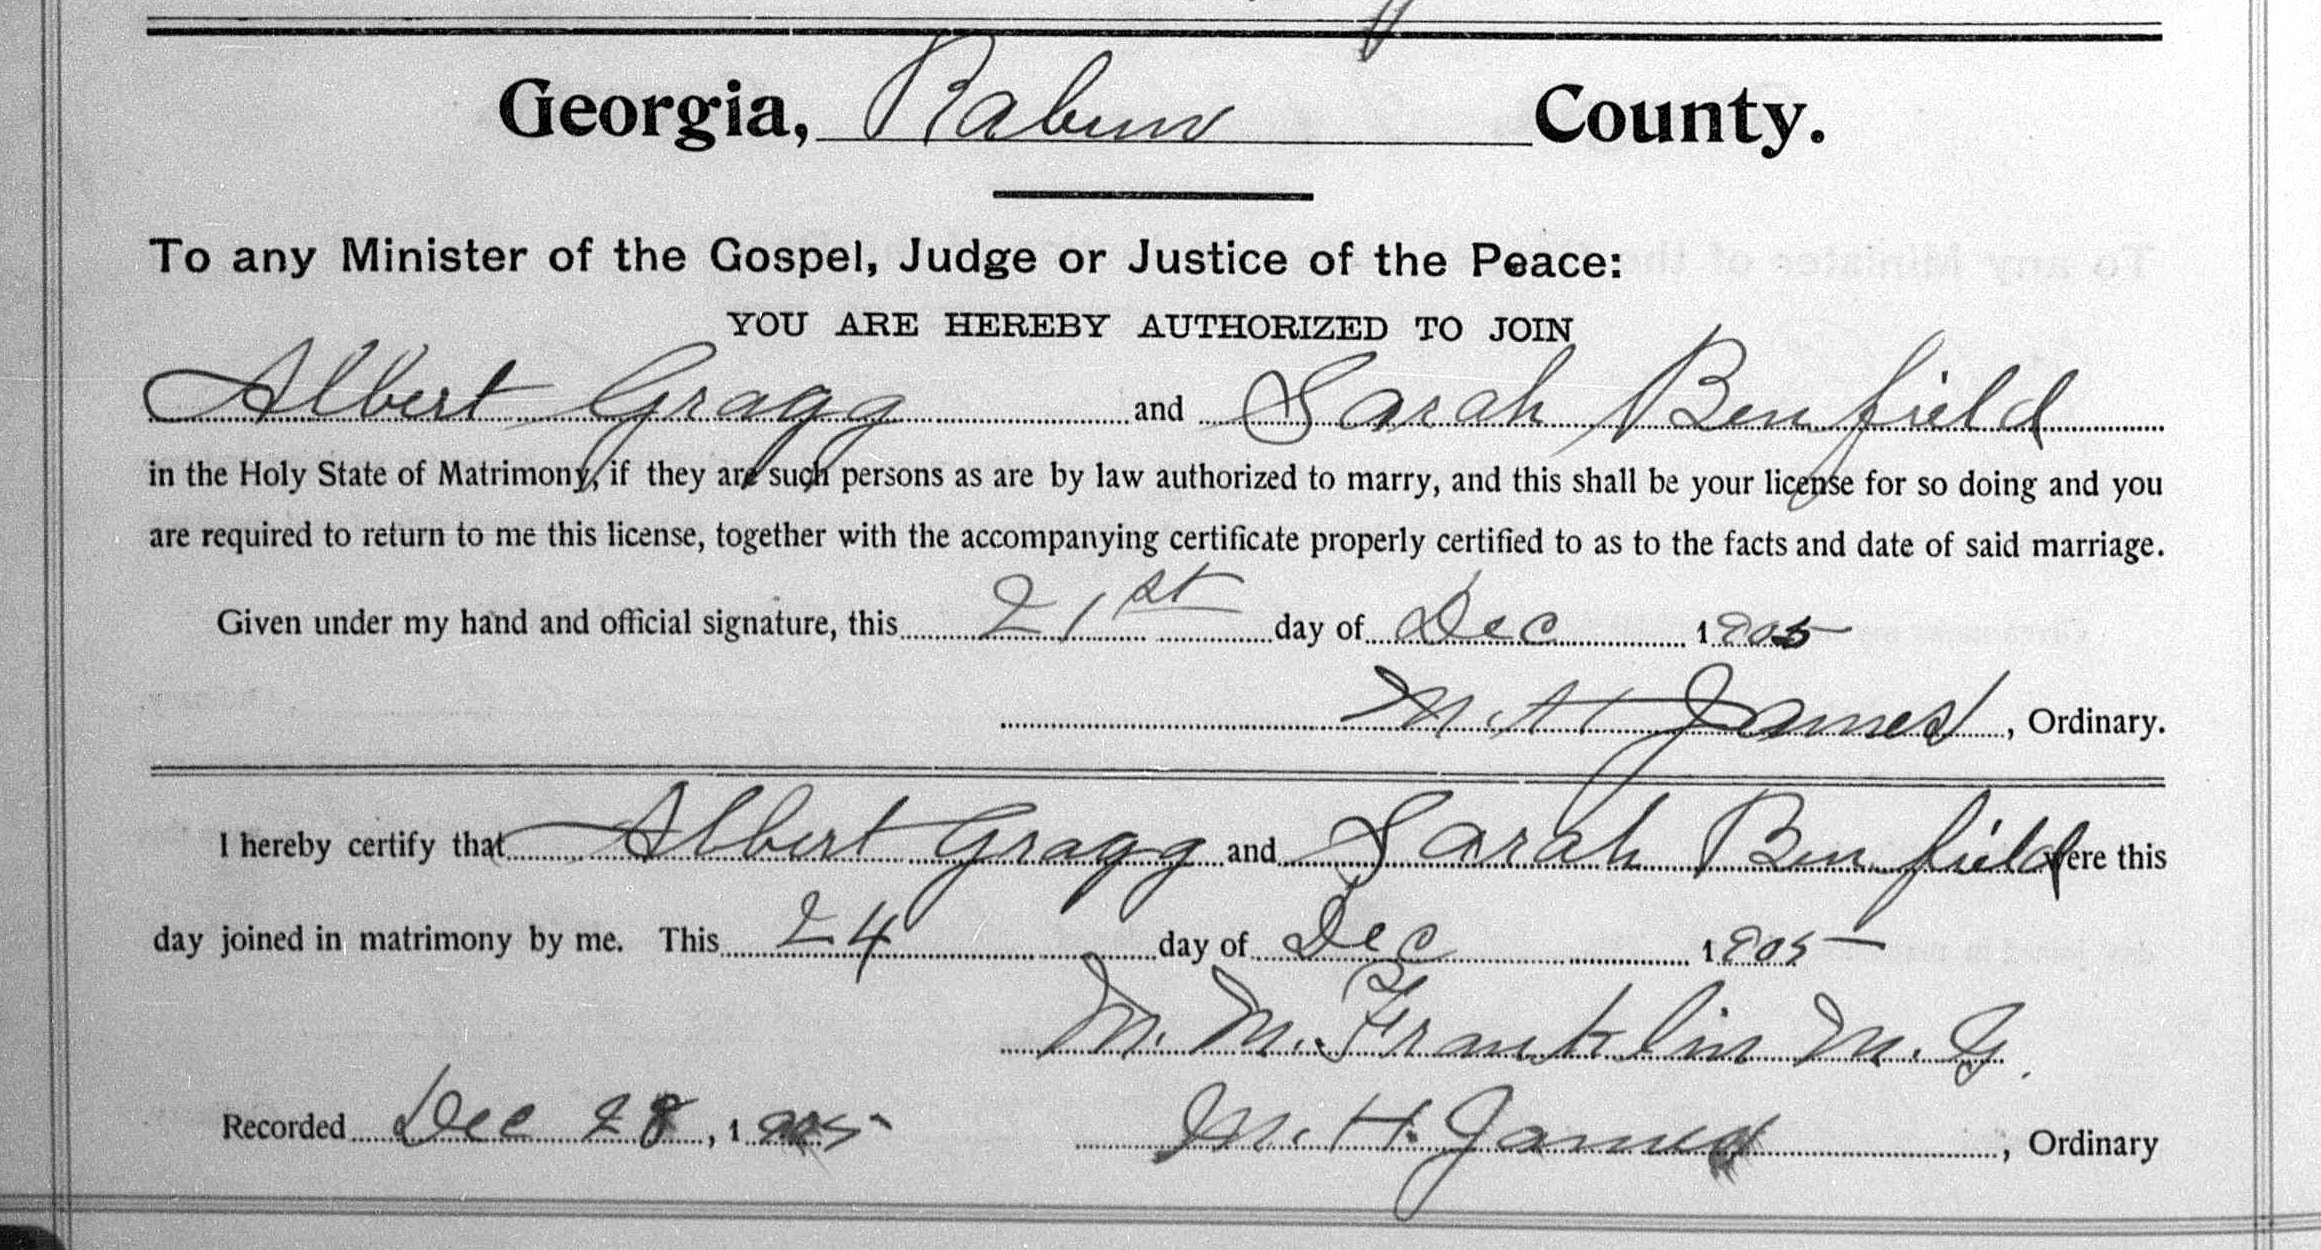 Georgia, Rabun County.
To any Minister of the Gospel, Judge or Justice of the Peace:
YOU ARE HEREBY AUTHORIZED TO JOIN
Albert Gragg and Sarah Benfield
in the Holy State of Matrimony, if they are such persons as are by law authorized to marry, and this shall be your license for so doing and you
are required to return to me this license, together with the accompanying certificate properly certified to as to the facts and date of said marriage.
Given under my hand and official signature, this 21st day of Dec 1905
M. H. James, Ordinary.
I hereby certify that Albert Gragg and Sarah Benfield were this
day joined in matrimony by me. This 24 day of Dec 1905
M. M. Franklin M. G.
Recorded Dec 28, 1905 M. H. James, Ordinary